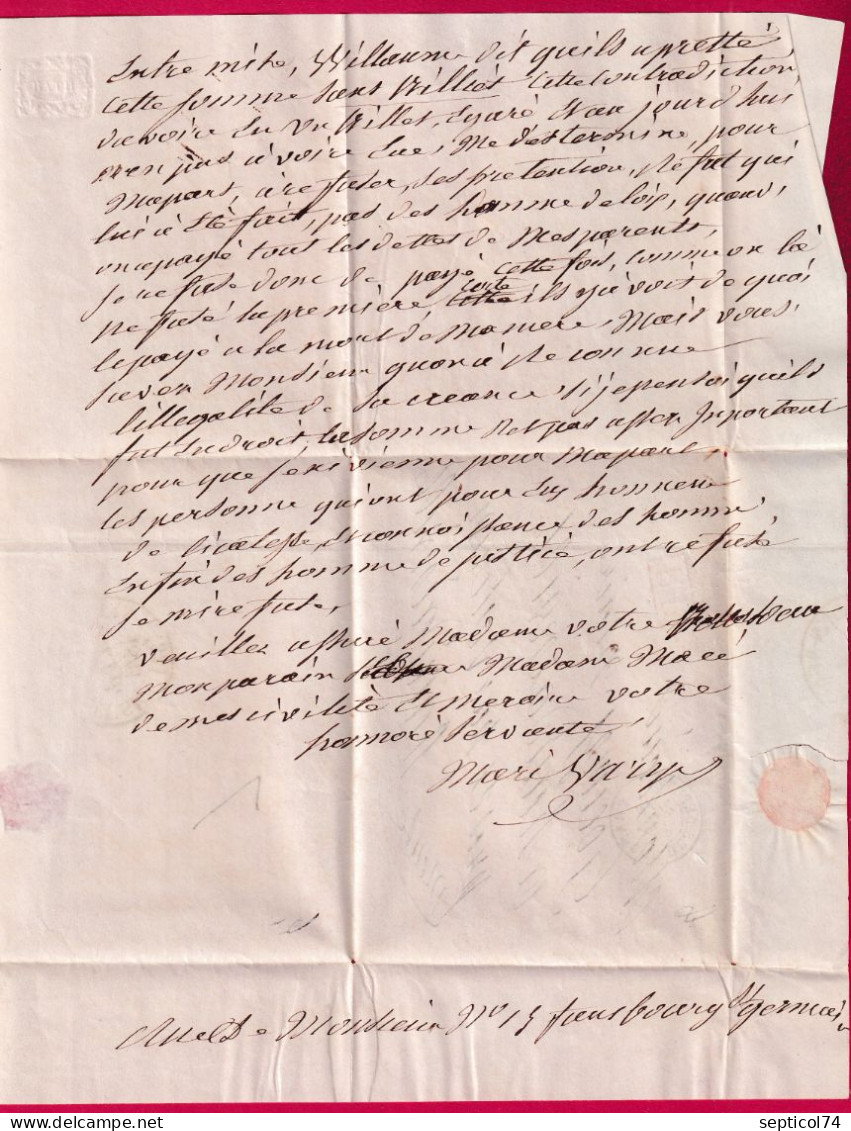 Entre mêtre, Willaume dit quils a pretté
cette somme sans Billiés cette contradiction
davoire eu un Billet, égaré et au jourdhui
nen pas à voire eue, Me desterminé, pour
Mapart, à refuser, ses pretention, Refut qui
lui à eté fait, pas des homme de lois, quand,
on apayé tout les dettes de Mes parents,
je refuse donc de payé cette fois, comme on là
refusé la première cette ils y avoit de quoi
lepayé a la mort de Mamere, Mais vous,
saver Monsieur quon à Reconnue
lillegalité de sa creance, si jepensoi quils
fut endroit la somme n'et pas asser Inportant
pour que jénivienne pour Mapart,
les personne qui ont pour eus honneur
delicatesse, et connoissance des homme,
Enfin des homme de justice, ont refusé
je mi refuse,
veuillez assuré Madame votre
Monparain Madame Macé
de mes civilité et me croire votre
honnoré Servante
Marie
Monsieur No 15 fausbourg St germain
septicol74